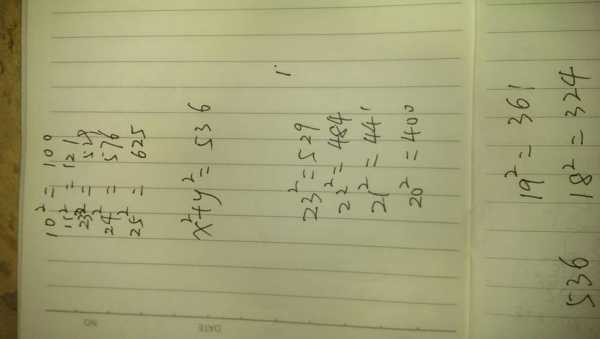 10² = 100
11² = 121
23² = 529
24² = 576
25² = 625
x² + y² = 536
23² = 529
22² = 484
21² = 441
20² = 400
19² = 361
18² = 324
536
NO
DATE